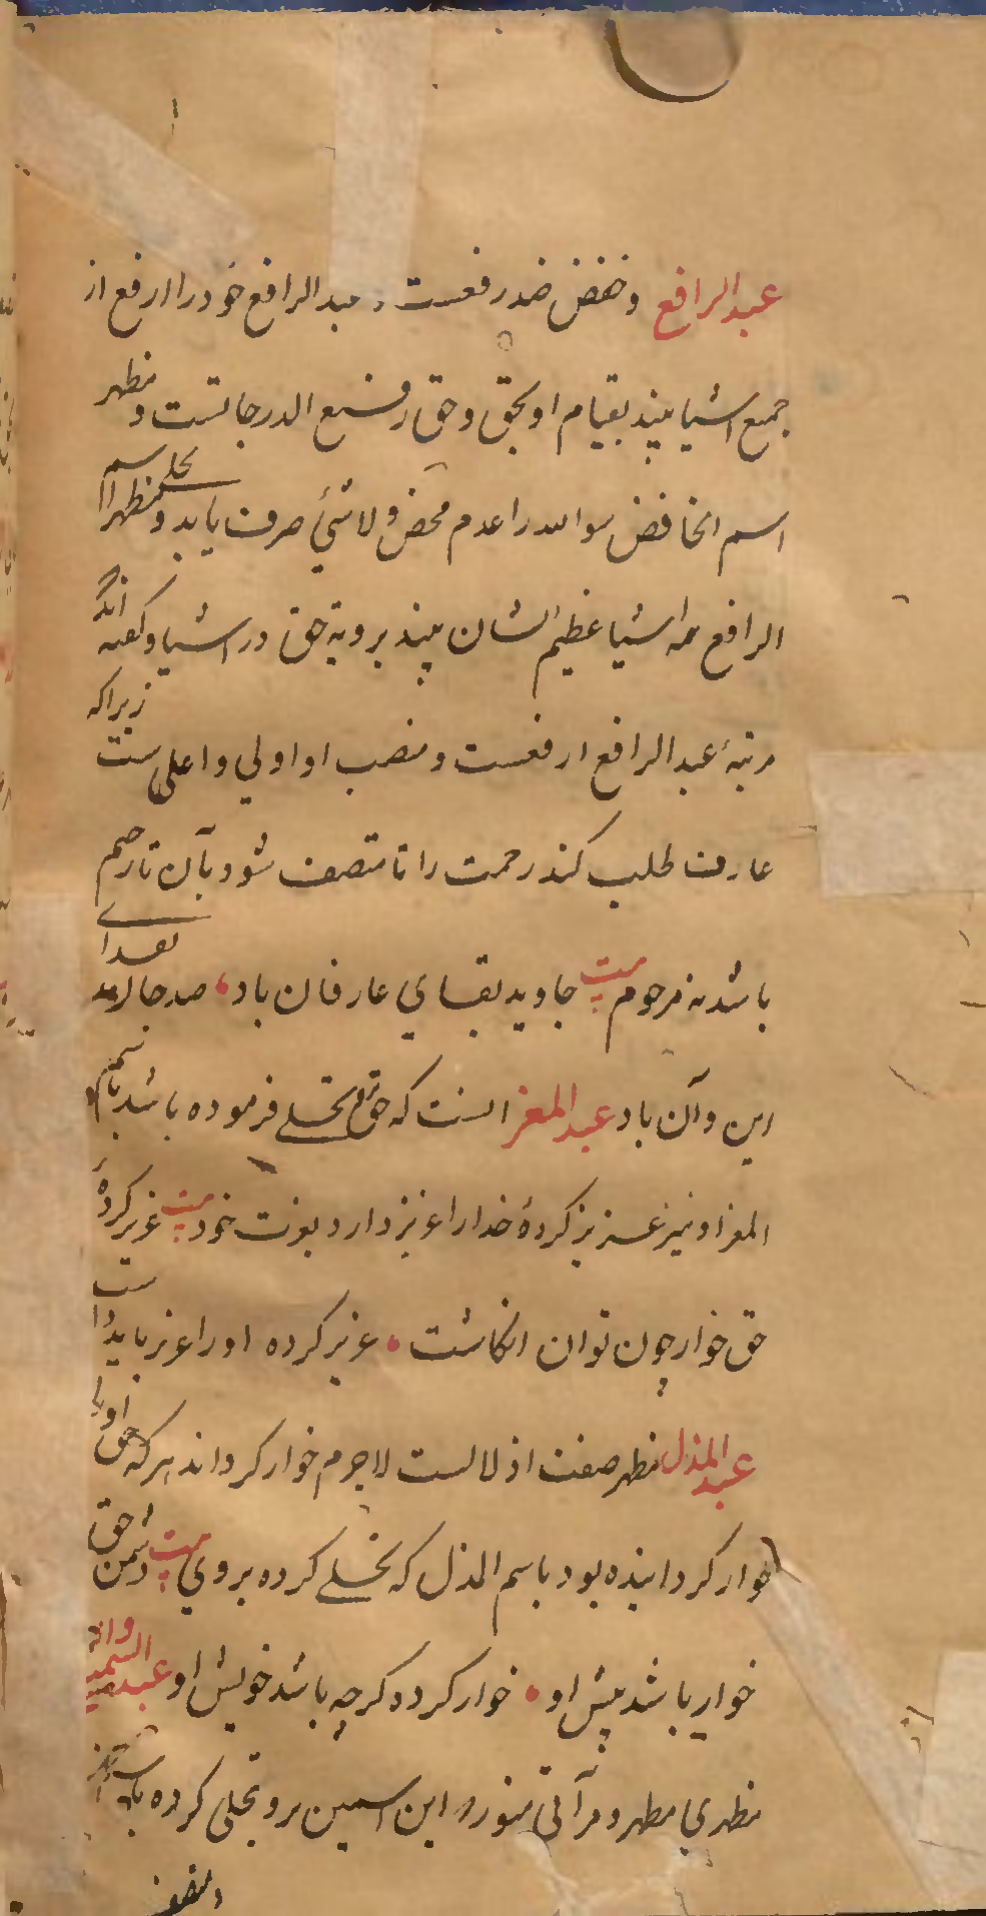 عبد الرافع و خفض ضد رفعست و عبد الرافع خود را ارفع از
جمیع اشیا بیند بقیام او بحق و حق رفیع الدرجاتست و مظهر
اسم الخافض سوا الله را عدم محض و لا شیء صرف یابد و مظهر اسم
الرافع همه اشیا عظیم الشان بیند برویة حق در اشیا و گفته اند که
مرتبهٔ عبد الرافع ارفعست و منصب او اولی و اعلی ست زیرا که
عارف طلب کند رحمت را تا متصف شود بآن تا رحیم
باشد نه مرحوم بیت جاوید بقای عارفان باد صد جان
این و آن باد عبد المعز آنست که حق تجلی فرموده باشد باسم
المعز او نیز عزیز کردهٔ خدا را عزیز دارد بعزت خود بیت عزیز کردهٔ
حق خوار چون توان انگاشت عزیز کرده او را عزیز باید داشت
عبد المذل مظهر صفت اذلالست لاجرم خوار گرداند هر که حق او را
خوار گردانیده بود باسم المذل که تجلی کرده بر وی بیت دشمن حق
خوار باشد پیش او خوار کرده گرچه باشد خویش او عبد السمیع
مظهری مطهر و مرآتی منور این اسمین برو تجلی کرده باشند
و متصف